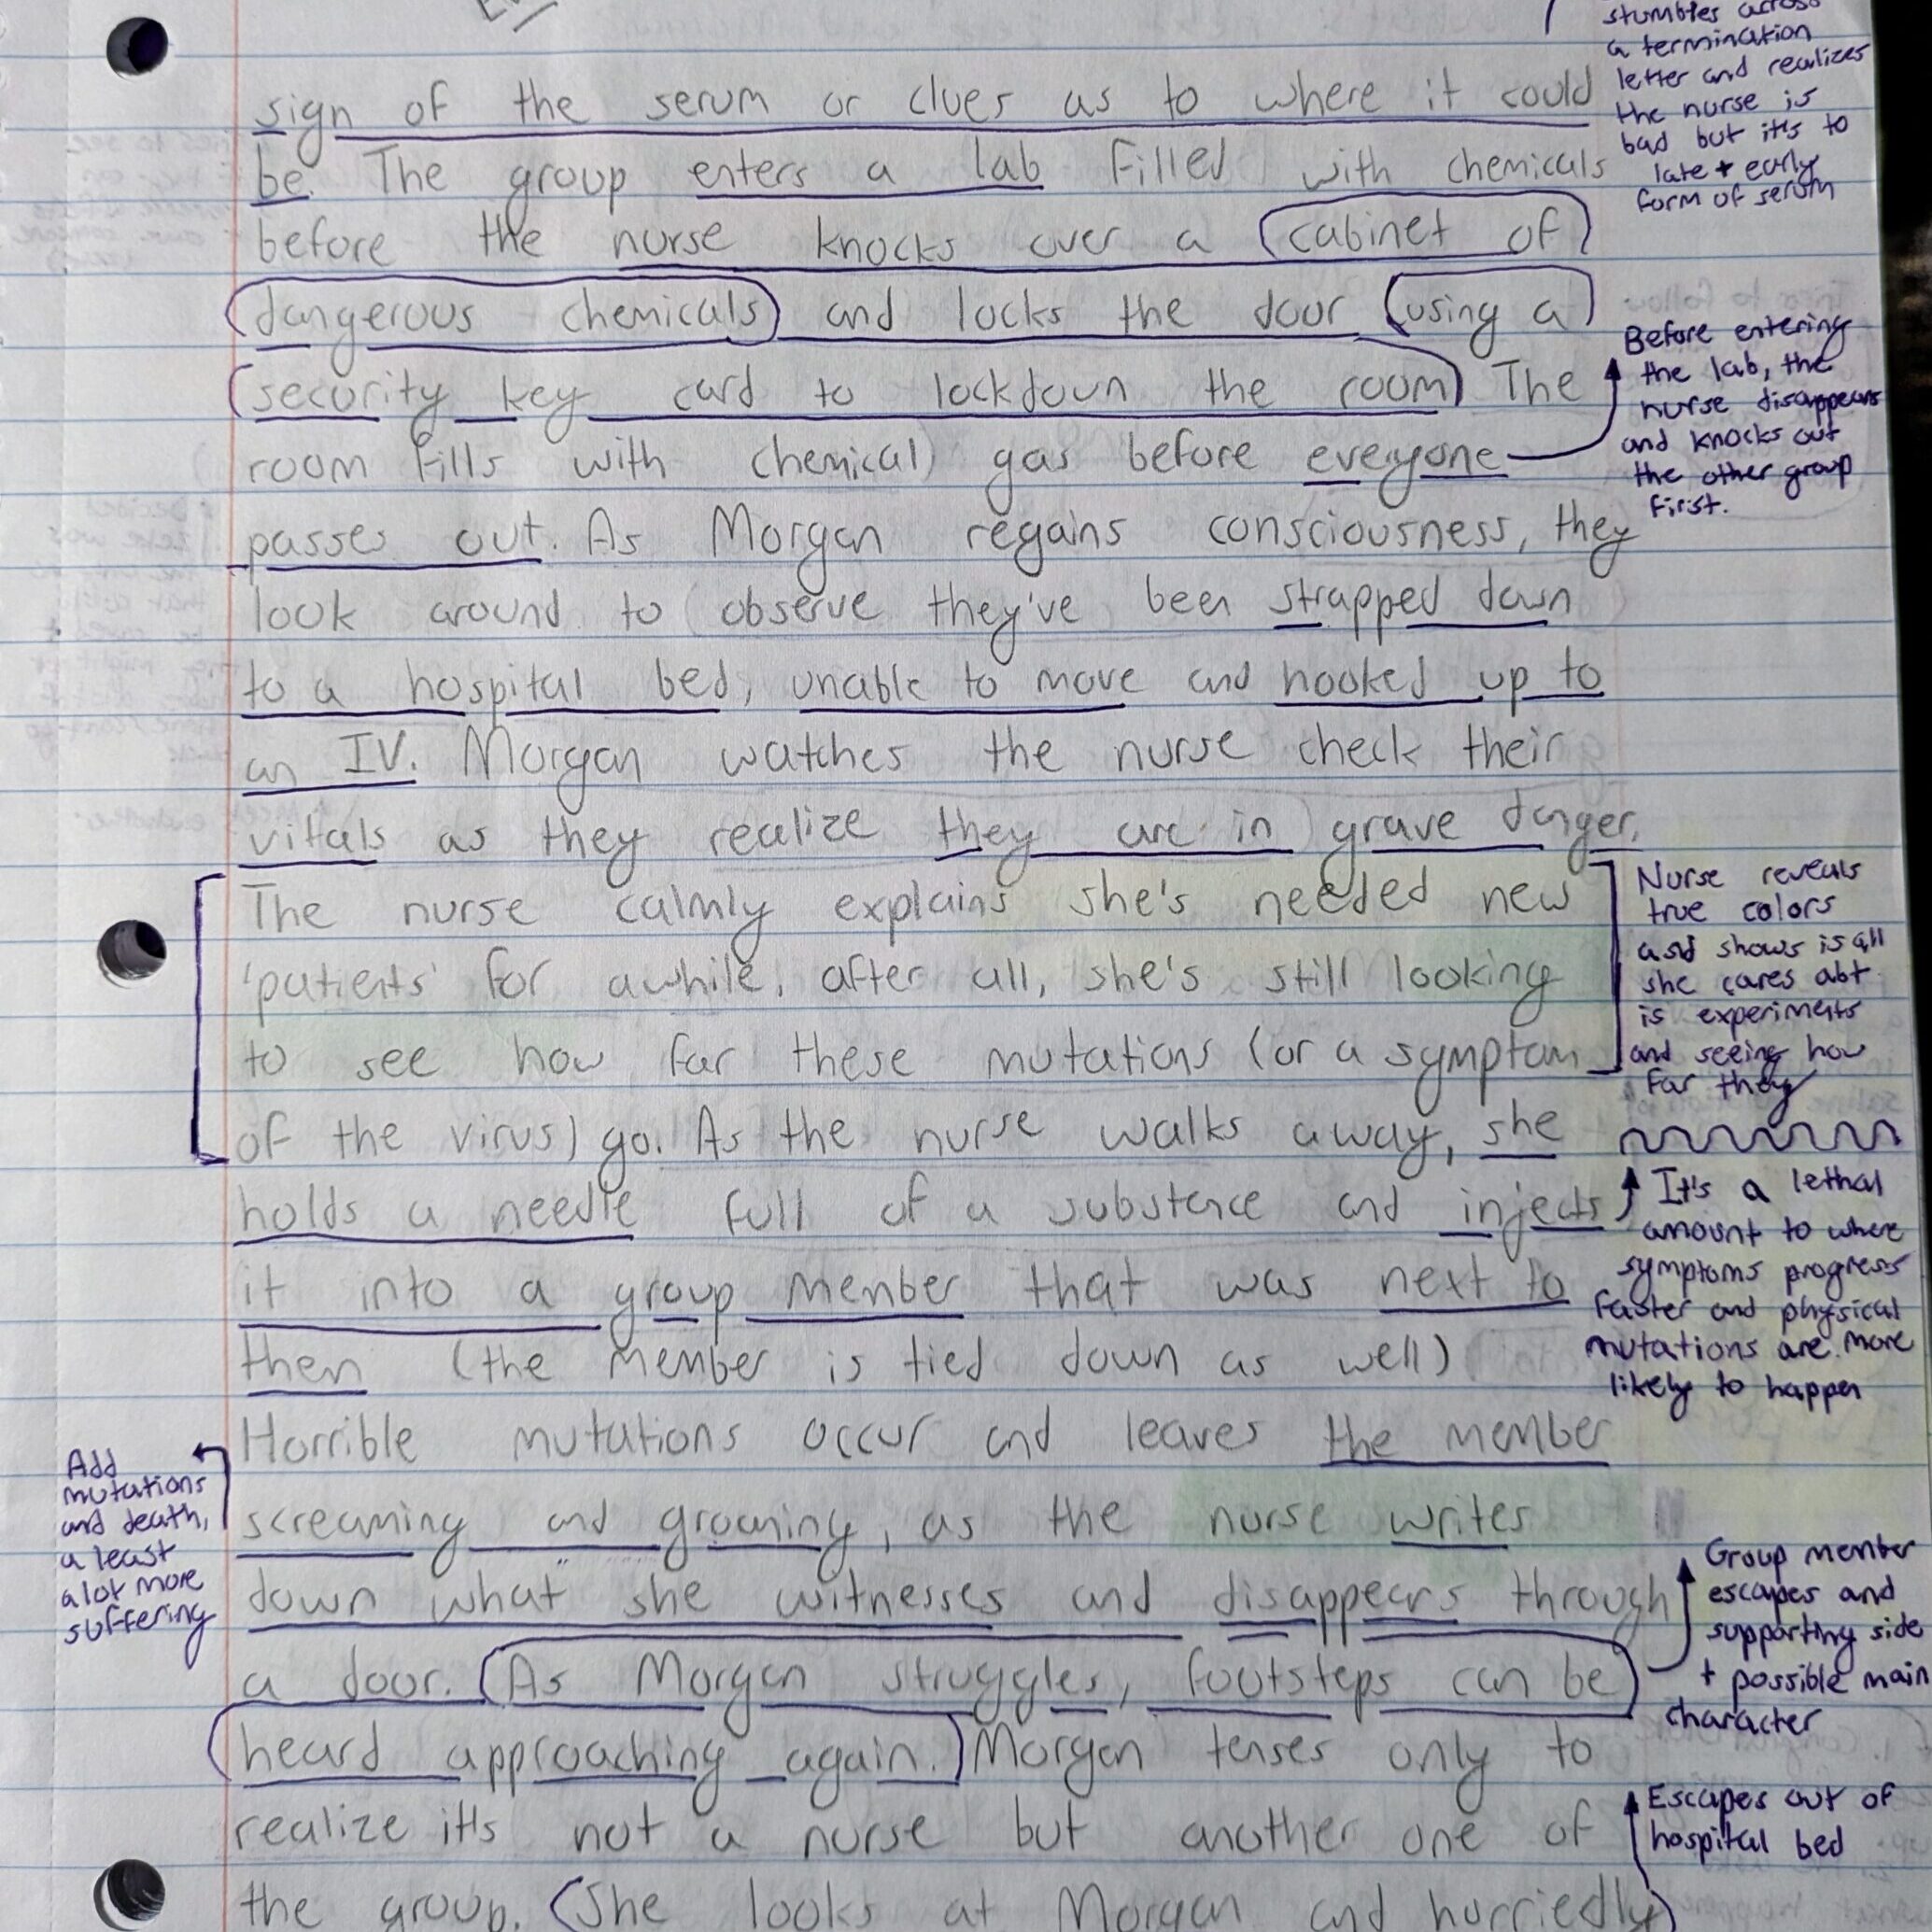 stumbles across
a termination
letter and realizes
the nurse is
bad but it's to
late + early
form of serum
sign of the serum or clues as to where it could
be. The group enters a lab filled with chemicals
before the nurse knocks over a (cabinet of
dangerous chemicals) and locks the door (using a
security key card to lockdown the room) The
room fills with chemical gas before everyone
Before entering
the lab, the
nurse disappears
and knocks out
the other group
first.
passes out. As Morgan regains consciousness, they
look around to observe they've been strapped down
to a hospital bed, unable to move and hooked up to
an IV. Morgan watches the nurse check their
vitals as they realize they are in grave danger.
The nurse calmly explains she's needed new
'patients' for awhile, after all, she's still looking
to see how far these mutations (or a symptom
of the virus) go. As the nurse walks away, she
Nurse reveals
true colors
and shows is all
she cares abt
is experiments
and seeing how
far they
holds a needle full of a substance and injects
it into a group member that was next to
then (the member is tied down as well)
It's a lethal
amount to where
symptoms progress
faster and physical
mutations are more
likely to happen
Horrible mutations occur and leaves the member
screaming and groaning, as the nurse writes
down what she witnesses and disappears through
Add
mutations
and death,
a least
a lot more
suffering
a door. (As Morgan struggles, footsteps can be
heard approaching again.) Morgan tenses only to
Group member
escapes and
supporting side
+ possible main
character
realize it's not a nurse but another one of
the group. (She looks at Morgan and hurriedly)
Escapes out of
hospital bed